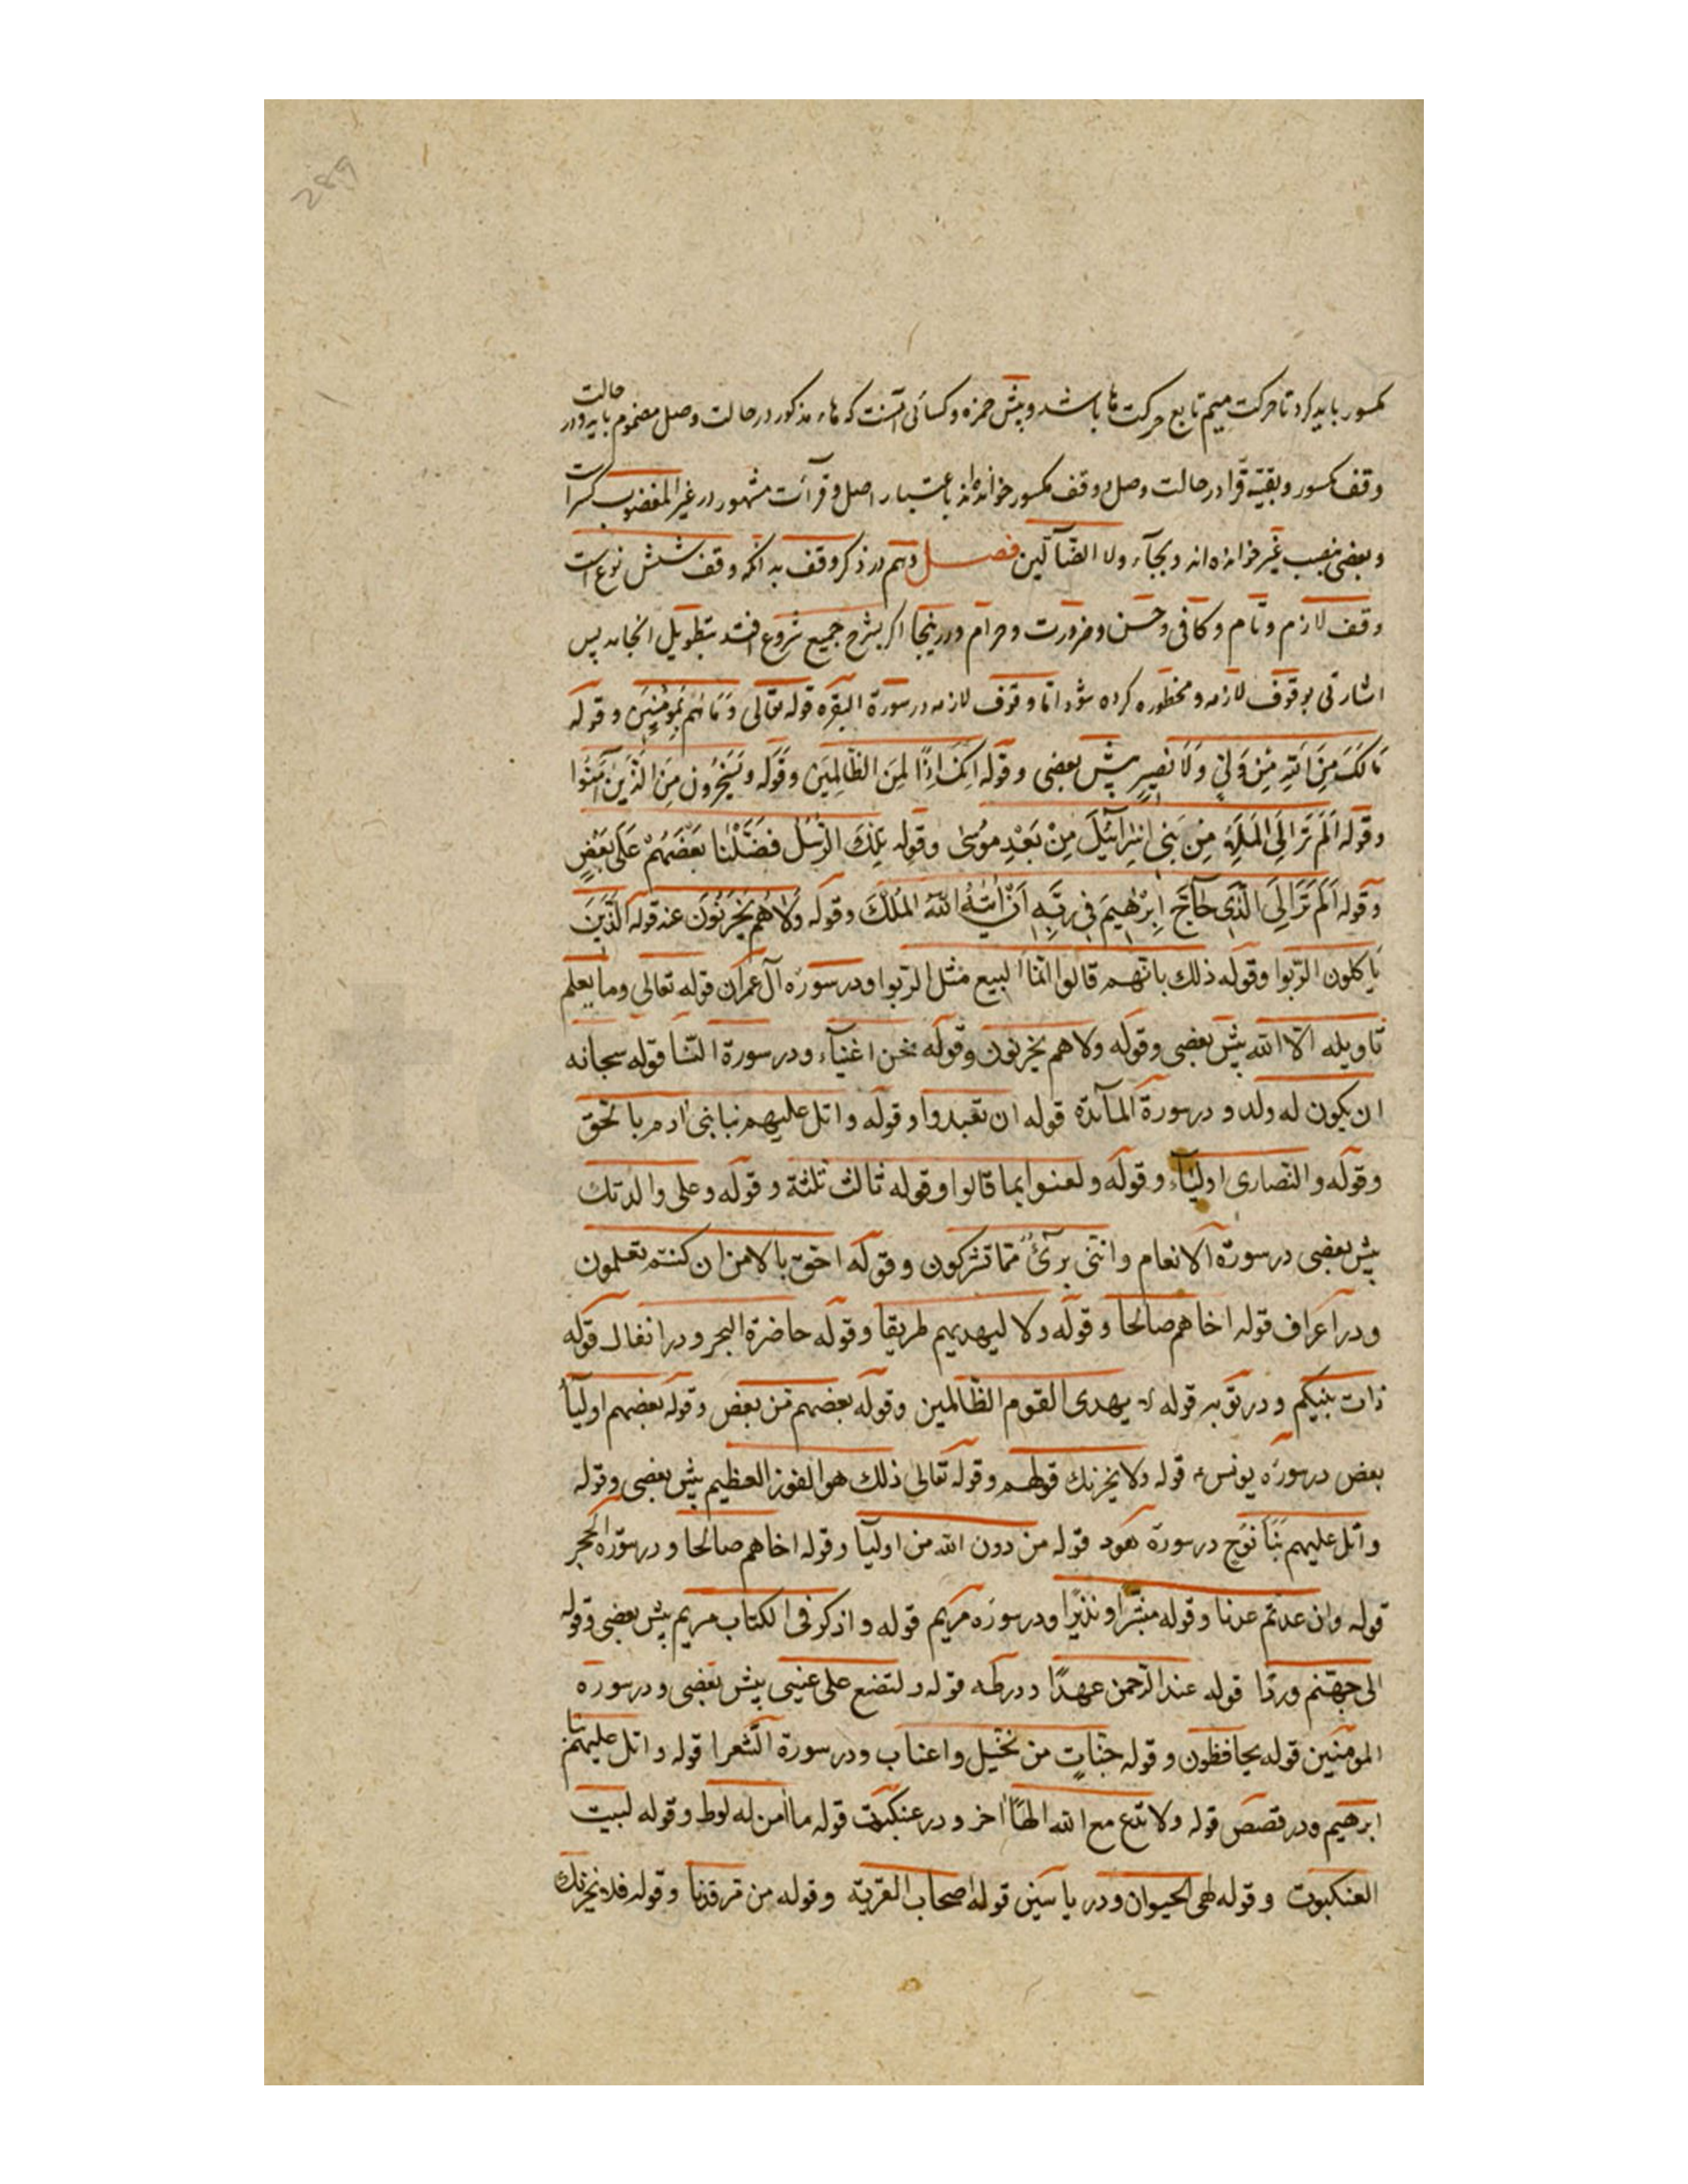 289
مکسور باید کرد تا حرکت میم تابع حرکت ها باشد و پیش حمزه و کسائی آنست که هاء مذکور در حالت وصل مضموم باید و در حالت
وقف مکسور و بقیه قرا در حالت وصل و وقف مکسور خوانده‌اند باعتبار اصل و قرآت مشهور در غیر المغضوب کسر است
و بعضی بنصب غیر خوانده اند و بجاء ولا الضآلین فصل دهم در ذکر وقف بدانکه وقف شش نوع است
وقف لازم و تام و کافی و حسن و ضرورت و حرام و در اینجا اگر بشرح جمیع شروع افتد بتطویل انجامد پس
اشارتی بوقوف لازمه و محظوره کرده شود اما وقوف لازمه در سورة البقره قوله تعالی وَمَا هُمْ بِمُؤْمِنِينَ وقوله
مَا لَكَ مِنَ اللّهِ مِنْ وَلِيٍّ وَلَا نَصِيرٍ پیش بعضی وقوله اِنَّكَ اِذًا لَمِنَ الظَّالِمِينَ وقوله وَيَسْخَرُونَ مِنَ الَّذِينَ آمَنُوا
وقوله اَلَمْ تَرَ اِلَى الْمَلَاِ مِنْ بَنِي اِسْرَآئِيلَ مِنْ بَعْدِ مُوسٰى وقوله تِلْكَ الرُّسُلُ فَضَّلْنَا بَعْضَهُمْ عَلٰى بَعْضٍ
وقوله اَلَمْ تَرَ اِلَى الَّذِي حَآجَّ اِبْرٰهِيمَ فِي رَبِّهِ اَنْ اٰتٰىهُ اللّهُ الْمُلْكَ وقوله وَلَا هُمْ يَحْزَنُونَ عند قوله الَّذِينَ
يأكلون الرّبوا وقوله ذلك بانّهم قالوا انّما البيع مثل الرّبوا ودر سورة آل عمران قوله تعالى وما يعلم
تاويله الّا الله پیش بعضی وقوله ولا هم يحزنون وقوله نحن اغنيآء ودر سورة النّسا قوله سبحانه
ان يكون له ولد و در سورة المآئدة قوله ان تعتدوا وقوله واتل عليهم نبا ابنى ادم بالحق
وقوله والنّصارى اوليآء وقوله ولعنوا بما قالوا وقوله ثالث ثلثة وقوله وعلى والدتك
پیش بعضی در سورة الانعام وانّنى برىٌ ممّا تشركون وقوله احقّ بالامن ان كنتم تعلمون
ودر اعراف قوله اخاهم صالحا وقوله ولا ليهديهم طريقا وقوله حاضرة البحر ودر انفال قوله
ذات بينكم ودر توبه قوله لا يهدى القوم الظّالمين وقوله بعضهم من بعض وقوله بعضهم اوليآ
بعض در سوره یونس ع قوله ولا يحزنك قولهم وقوله تعالى ذلك هو الفوز العظيم پیش بعضی وقوله
واتل عليهم نبا نوح در سورة هود قوله من دون الله من اوليآ وقوله اخاهم صالحا ودر سورة الحجر
قوله وان عدتم عدنا وقوله مبشّرا ونذيرًا ودر سوره مریم قوله واذكر فى الكتاب مريم پیش بعضی وقوله
الى جهنّم وردًا قوله عند الرّحمن عهدًا ودر طه قوله ولتصنع على عينى پیش بعضی ودر سوره
المومنین قوله يحافظون وقوله جنّاتٍ من نخيل واعناب ودر سورة الشّعرا قوله واتل عليهم نبا
ابرهيم ودر قصص قوله ولا تدع مع الله الٰهًا اخر ودر عنکبوت قوله فامن له لوط وقوله لبيت
العنكبوت وقوله لهى الحيوان ودر یاسین قوله اصحاب القرية وقوله من مرقدنا وقوله فلا يحزنك